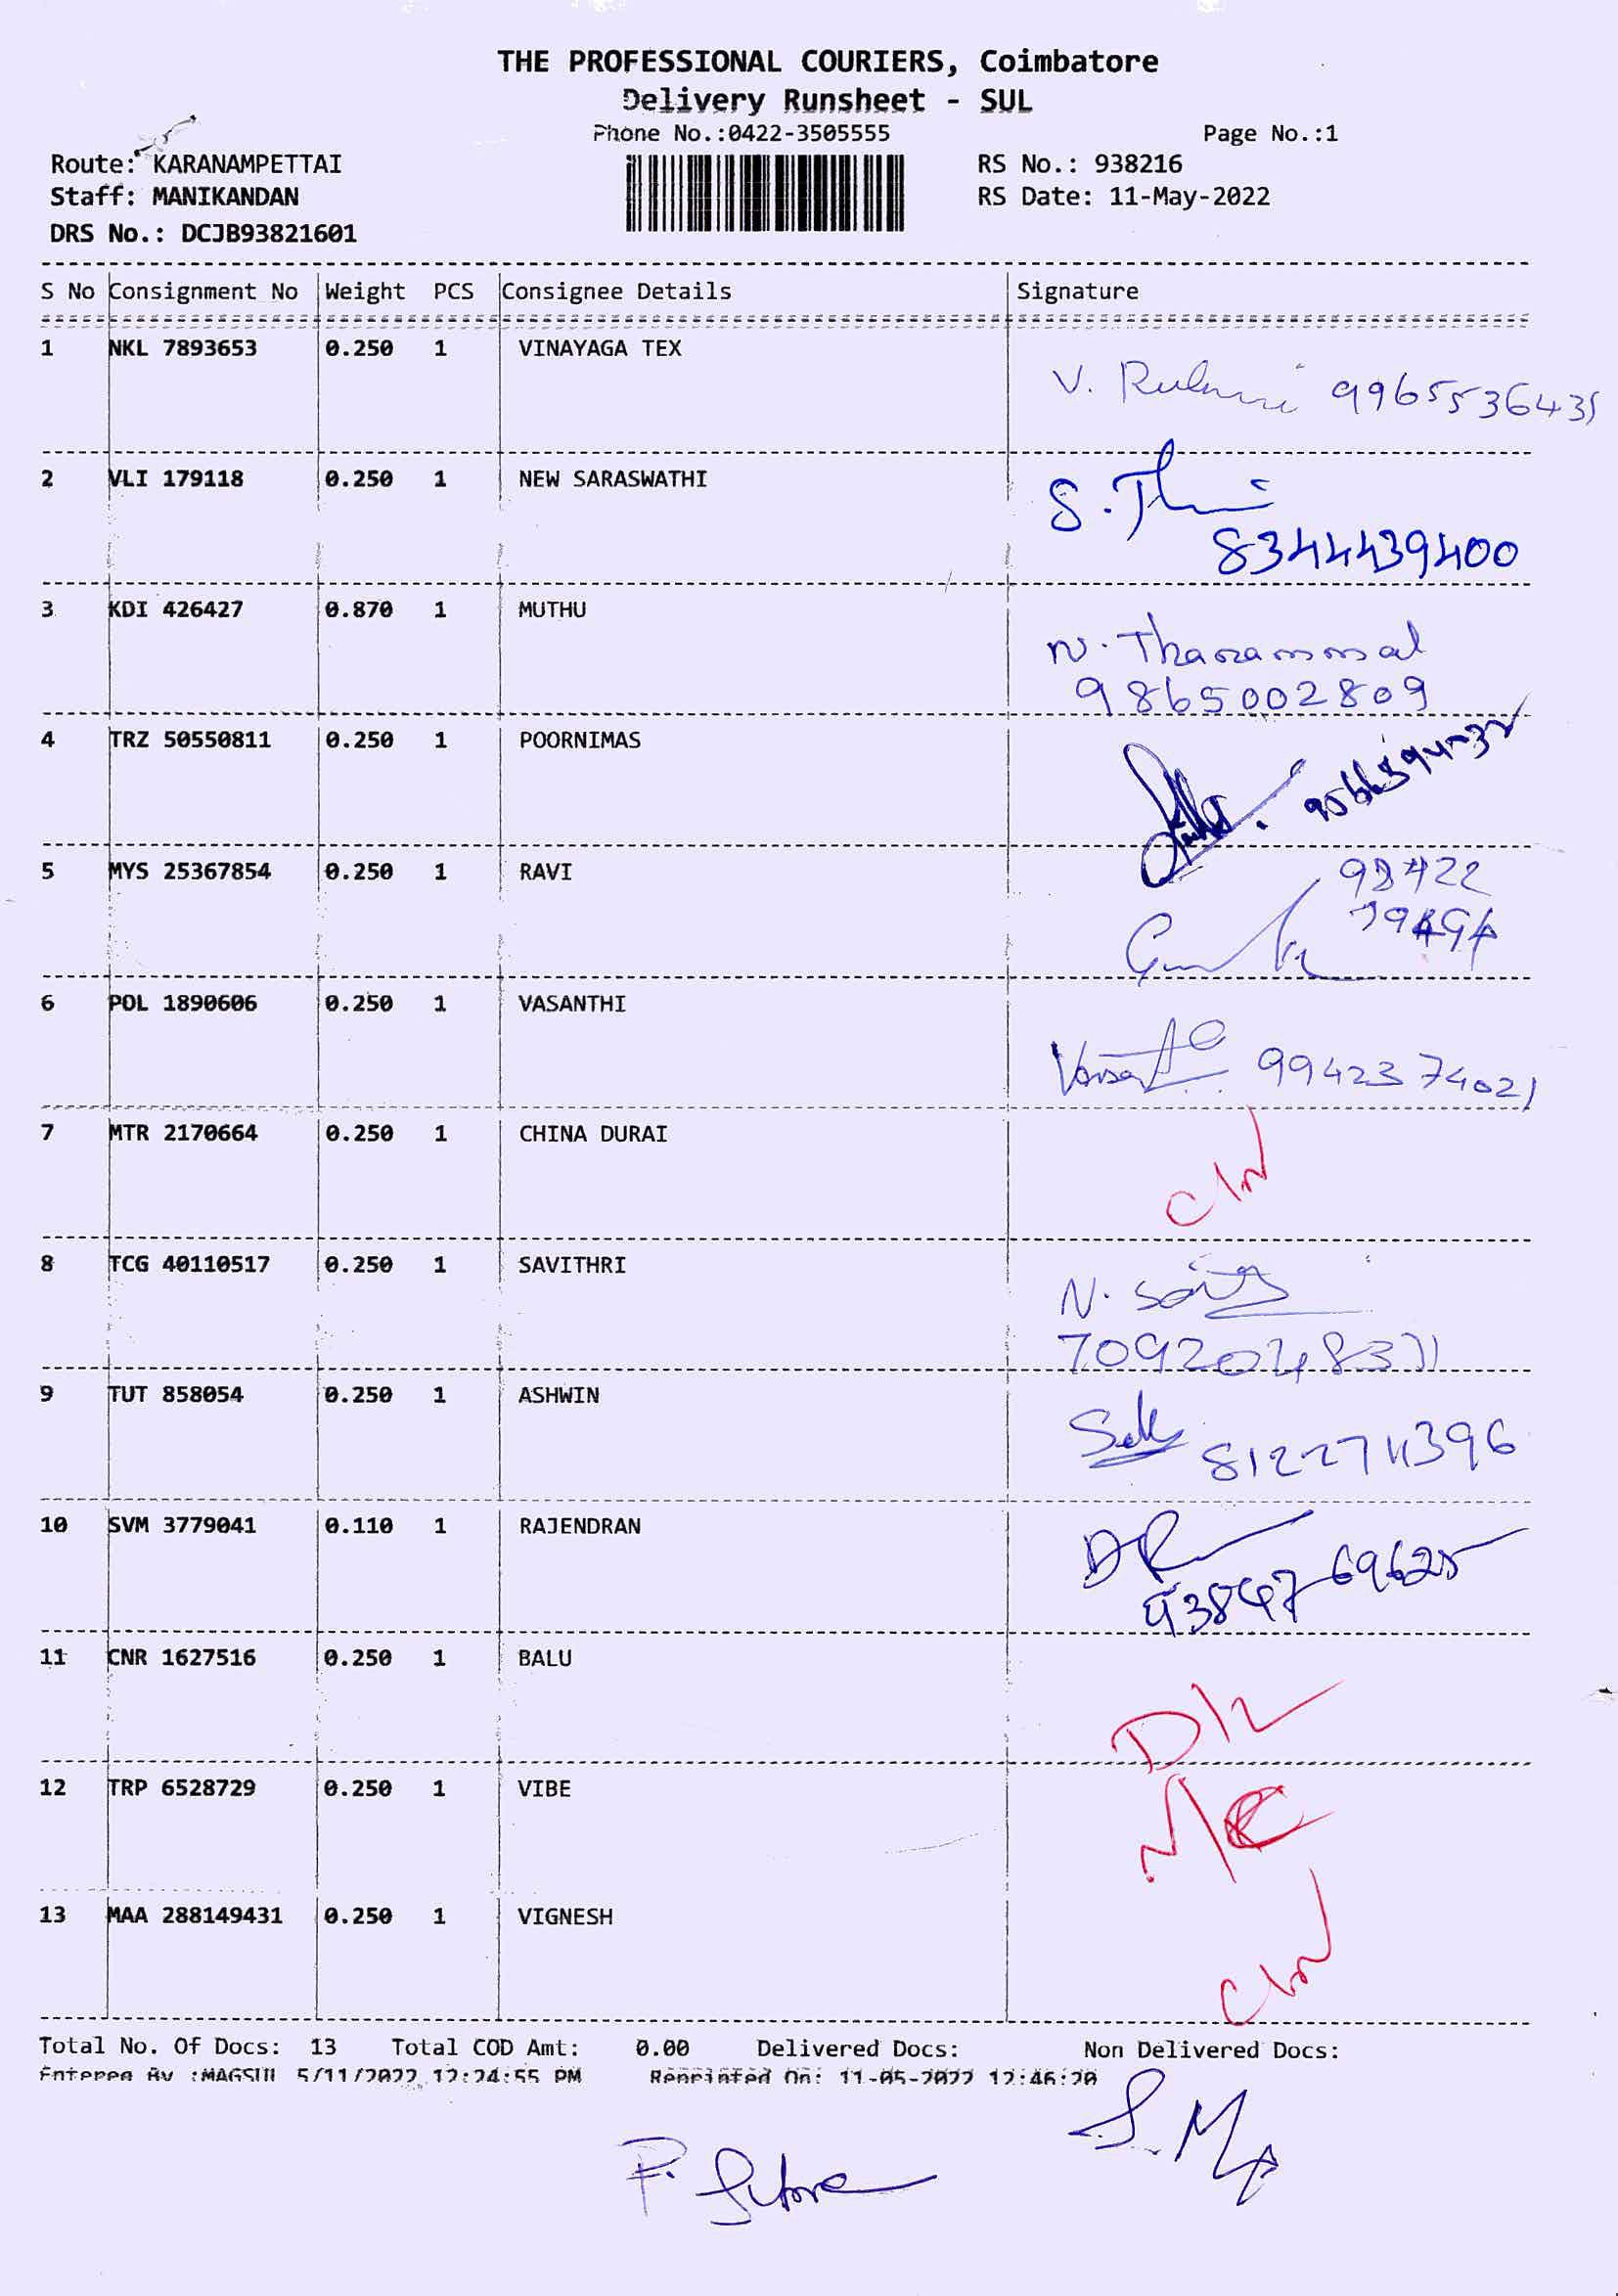 THE PROFESSIONAL COURIERS, Coimbatore
Delivery Runsheet - SUL
Phone No.:0422-3505555 Page No.:1
Route: KARANAMPETTAI RS No.: 938216
Staff: MANIKANDAN RS Date: 11-May-2022
DRS No.: DCJB93821601
S No Consignment No Weight PCS Consignee Details Signature
1 NKL 7893653 0.250 1 VINAYAGA TEX
V. 9965536435
2 VLI 179118 0.250 1 NEW SARASWATHI
8344439400
3 KDI 426427 0.870 1 MUTHU
N. Tharammal
9865002809
4 TRZ 50550811 0.250 1 POORNIMAS
5 MYS 25367854 0.250 1 RAVI
6 POL 1890606 0.250 1 VASANTHI
9942374021
7 MTR 2170664 0.250 1 CHINA DURAI
8 TCG 40110517 0.250 1 SAVITHRI
N.
9 TUT 858054 0.250 1 ASHWIN
8122711396
10 SVM 3779041 0.110 1 RAJENDRAN
11 CNR 1627516 0.250 1 BALU
D/L
12 TRP 6528729 0.250 1 VIBE
13 MAA 288149431 0.250 1 VIGNESH
Total No. Of Docs: 13 Total COD Amt: 0.00 Delivered Docs: Non Delivered Docs:
Entered By :MAGSUL 5/11/2022 12:24:55 PM Reprinted On: 11-05-2022 12:46:20